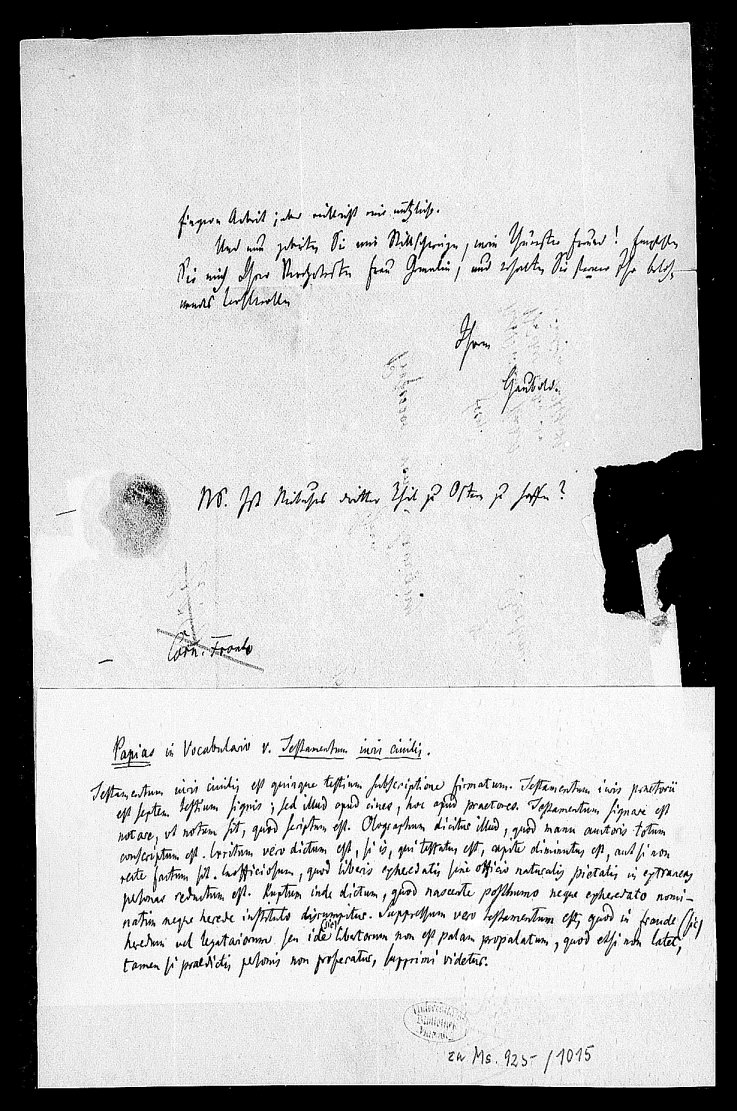 Arbeit; aber vielleicht mir nützlich.
Und nun Sie mein Theurer Freund! Empfehlen
Sie mich Ihrer Frau Gemalin, und erhalten Sie ferner Ihr
Wohlwollen
Ihrem
Haubold.
NS. Ist Niebuhrs dritter Theil zu Ostern zu hoffen?
Corn. Fronto
Papias in Vocabulario v. Testamentum iuris civilis.
Testamentum iuris civilis est quinque testium subscriptione firmatum. Testamentum iuris praetorii
est septem testium signis; sed illud apud cives, hoc apud praetores. Testamentum signare est
notare, ut notum sit, quod scriptum est. Olographum dicitur illud, quod manu auctoris totum
conscriptum est. Irritum vero dictum est, si is, qui testatus est, capite diminutus est, aut si non
recte factum sit. Inofficiosum, quod liberis exheredatis sine officio naturalis pietatis in extraneas
personas redactum est. Ruptum inde dictum, quod nascente posthumo neque exheredato nomi-
natim neque herede instituto disrumpitur. Suppressum vero testamentum est, quod in fraude (sic)
heredum vel legatariorum seu (sic) libertorum non est palam propalatum, quod etsi non latet,
tamen si praedictis personis non proferatur, supprimi videtur.
zu Ms. 925/1015